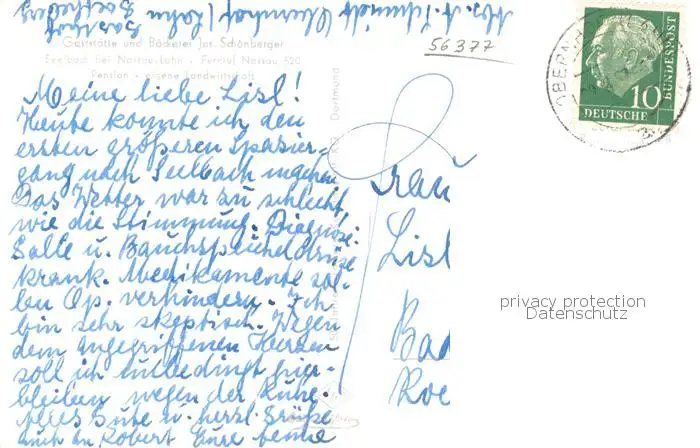 Abs. A. Schmidt Obernhof / Lahn
Gasthof
56377
Gaststätte und Bäckerei Jos. Schönberger
Seelbach bei Nassau Lahn - Fernruf Nassau 520
Pension - eigene Landwirtschaft
Meine liebe Lisl!
Heute konnte ich den
ersten größeren Spazier-
gang nach Seelbach machen
Das Wetter war zu schlecht,
wie die Stimmung. Diagnose:
Galle u. Bauchspeicheldrüse
krank. Medikamente sol-
len Op. verhindern. Ich
bin sehr skeptisch. Wegen
dem angegriffenen Herzen
soll ich unbedingt hier-
bleiben wegen der Ruhe.
Alles Gute u. herzl. Grüße
auch an Robert Eure
Dortmund
Frau
Lisl
Bad
OBERNH
10
DEUTSCHE
BUNDESPOST
privacy protection
Datenschutz